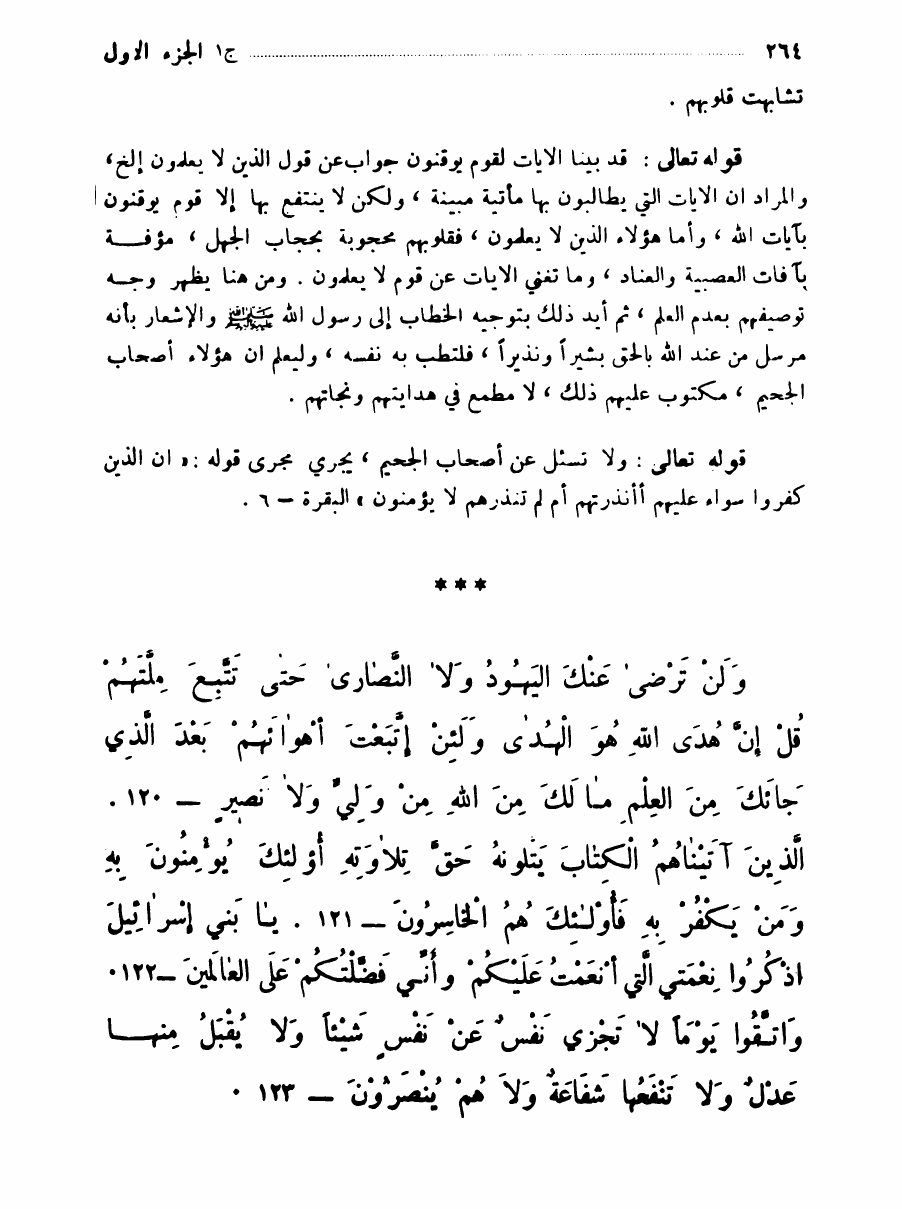 ٢٦٤ ........................ ج١ الجزء الاول
تشابهت قلوبهم .
قوله تعالى : قد بينا الايات لقوم يوقنون جواب عن قول الذين لا يعلمون إلخ،
والمراد ان الايات التي يطالبون بها مأتية مبينة ، ولكن لا ينتفع بها إلا قوم يوقنون
بآيات الله ، وأما هؤلاء الذين لا يعلمون ، فقلوبهم محجوبة بحجاب الجهل ، مؤفـــة
بآفات العصبية والعناد ، وما تغني الايات عن قوم لا يعلمون . ومن هنا يظهر وجـــه
توصيفهم بعدم العلم ، ثم أيد ذلك بتوجيه الخطاب إلى رسول الله ﷺ والإشعار بأنه
مرسل من عند الله بالحق بشيراً ونذيراً ، فلتطب به نفسه ، وليعلم ان هؤلاء أصحاب
الجحيم ، مكتوب عليهم ذلك ، لا مطمع في هدايتهم ونجاتهم .
قوله تعالى : ولا تسئل عن أصحاب الجحيم ، يجري مجرى قوله : « ان الذين
كفروا سواء عليهم أأنذرتهم أم لم تنذرهم لا يؤمنون » البقرة – ٦ .
* * *
وَلَنْ تَرْضىٰ عَنْكَ اليَهُودُ وَلا النَّصٰارىٰ حَتىّٰ تَتَّبِعَ مِلَّتَهُمْ
قُلْ إِنَّ هُدَى اللهِ هُوَ الْهُدىٰ وَلَئِنْ إِتَّبَعْتَ أَهْوٰائَهُمْ بَعْدَ الَّذِي
جٰائَكَ مِنَ العِلْمِ مـٰا لَكَ مِنَ اللهِ مِنْ وَلِيٍّ وَلاٰ نَصِيرٍ – ١٢٠ .
الَّذِينَ آتَيْنٰاهُمُ الْكِتٰابَ يَتْلُونَهُ حَقَّ تِلٰاوَتِهِ أُوْلئِكَ يُؤْمِنُونَ بِهِ
وَمَنْ يَكْفُرْ بِهِ فَأُوْلـٰئِكَ هُمُ الْخَاسِرُونَ – ١٢١ . يـٰا بَنِي إِسْرٰائِيلَ
اذْكُرُوا نِعْمَتِي الَّتِي أَنْعَمْتُ عَلَيْكُمْ وَأَنّـِي فَضَّلْتُكُمْ عَلَى العٰالَمِينَ –١٢٢٠
وَاتَّقُوا يَوْمَاً لاٰ تَجْزِي نَفْسٌ عَنْ نَفْسٍ شَيْئاً وَلاٰ يُقْبَلُ مِنهـــٰا
عَدْلٌ وَلاٰ تَنْفَعُهٰا شَفٰاعَةٌ وَلاَ هُمْ يُنْصَرُوْنَ – ١٢٣ .